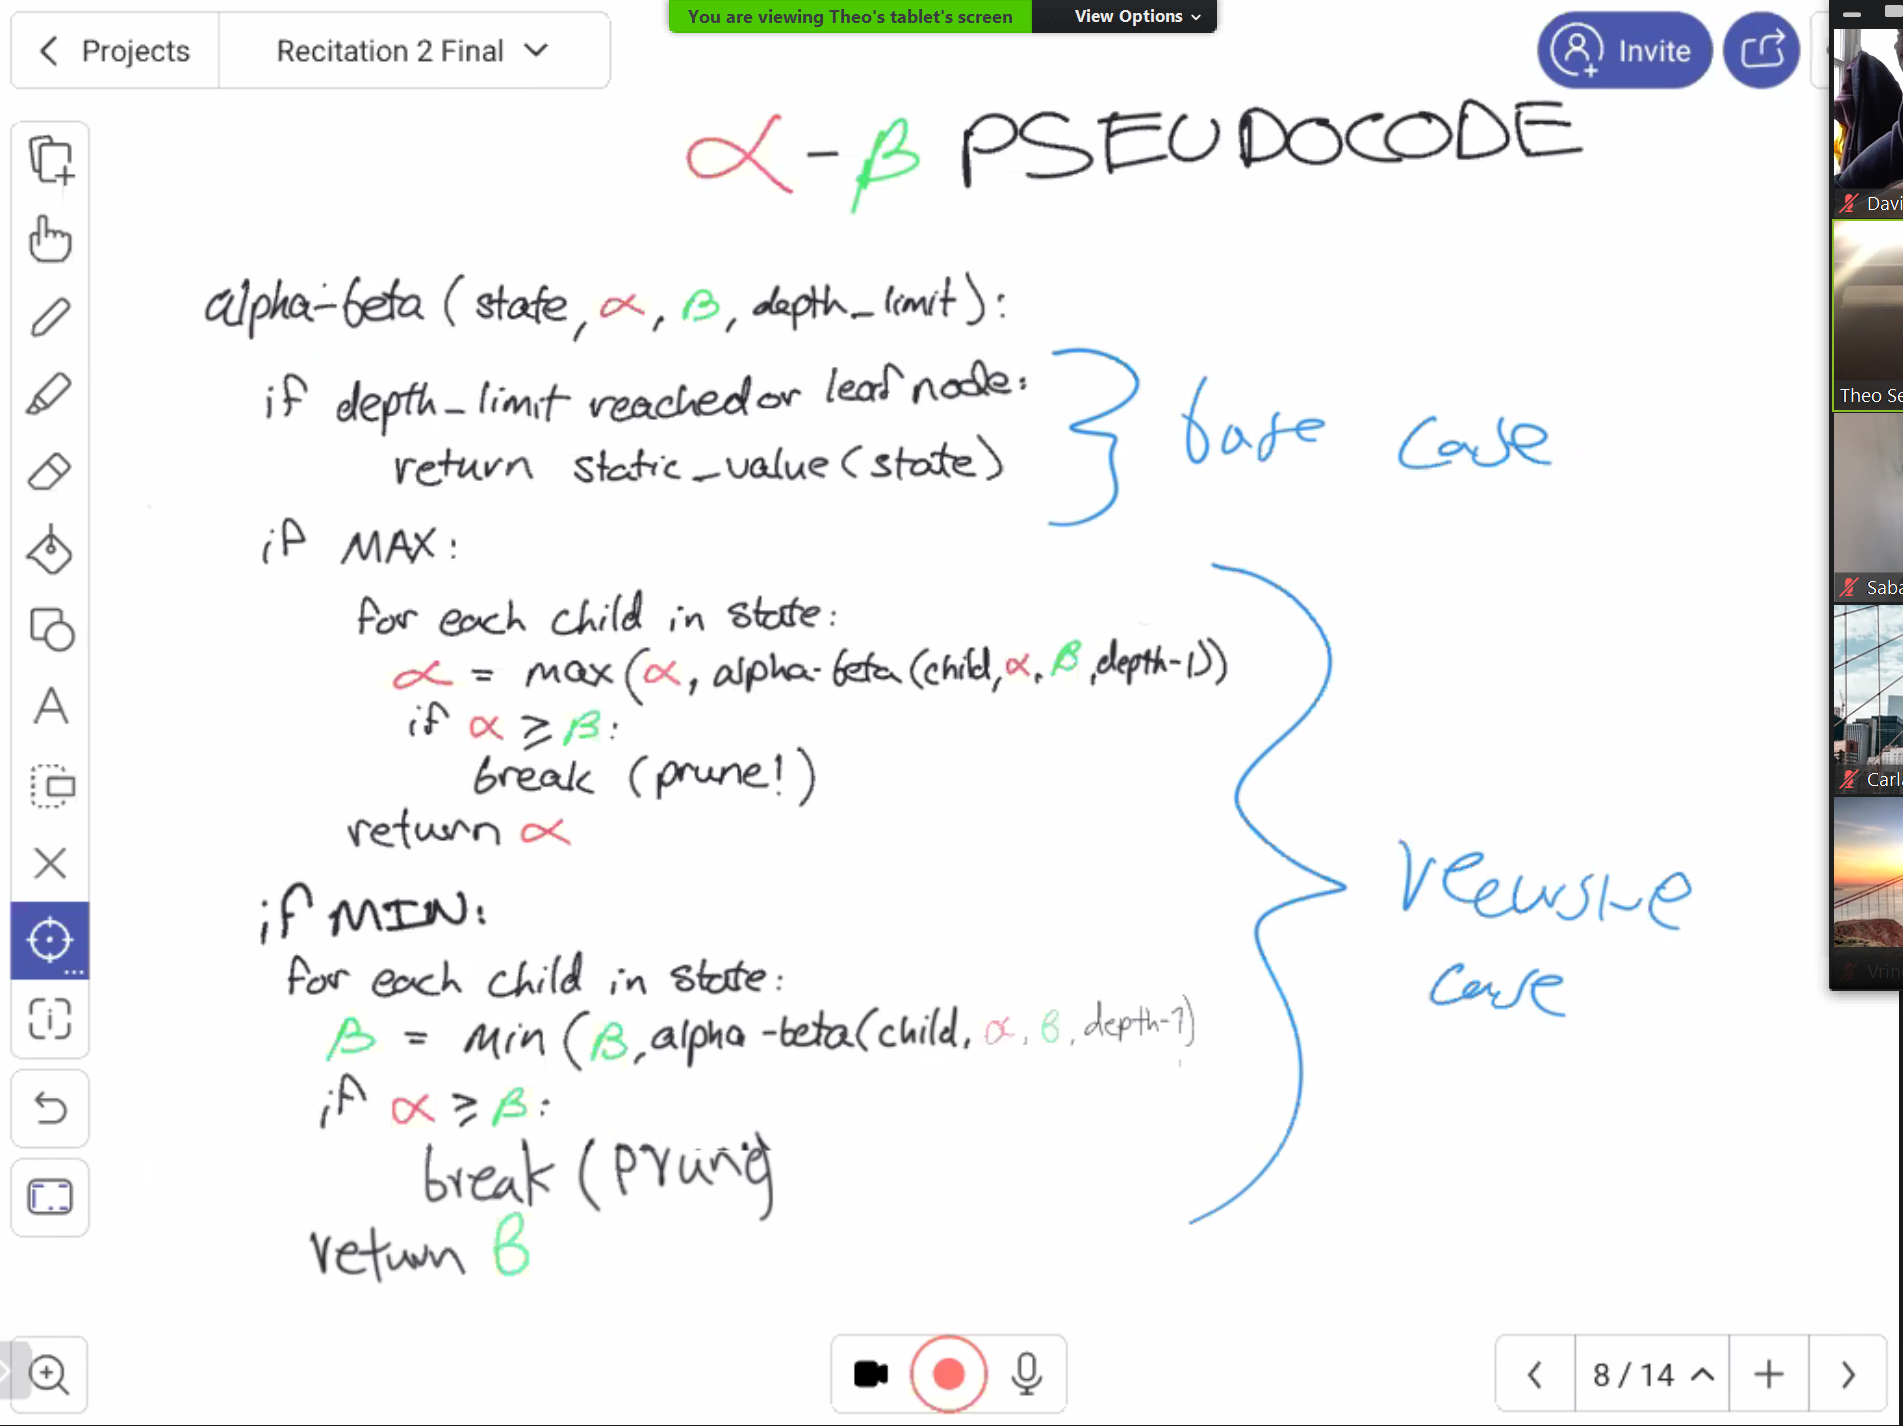 You are viewing Theo's tablet's screen
View Options
Projects
Recitation 2 Final
Invite
α-β PSEUDOCODE
alpha-beta (state, α, β, depth_limit):
if depth_limit reached or leaf node:
return static_value (state)
base case
if MAX:
for each child in state:
α = max (α, alpha-beta (child, α, β, depth-1))
if α ≥ β:
break (prune!)
return α
if MIN:
for each child in state:
β = min (β, alpha-beta (child, α, β, depth-1)
if α ≥ β:
break (prune)
return β
recursive
case
Davi
Theo Se
Saba
Carl
Vrin
A
8 / 14